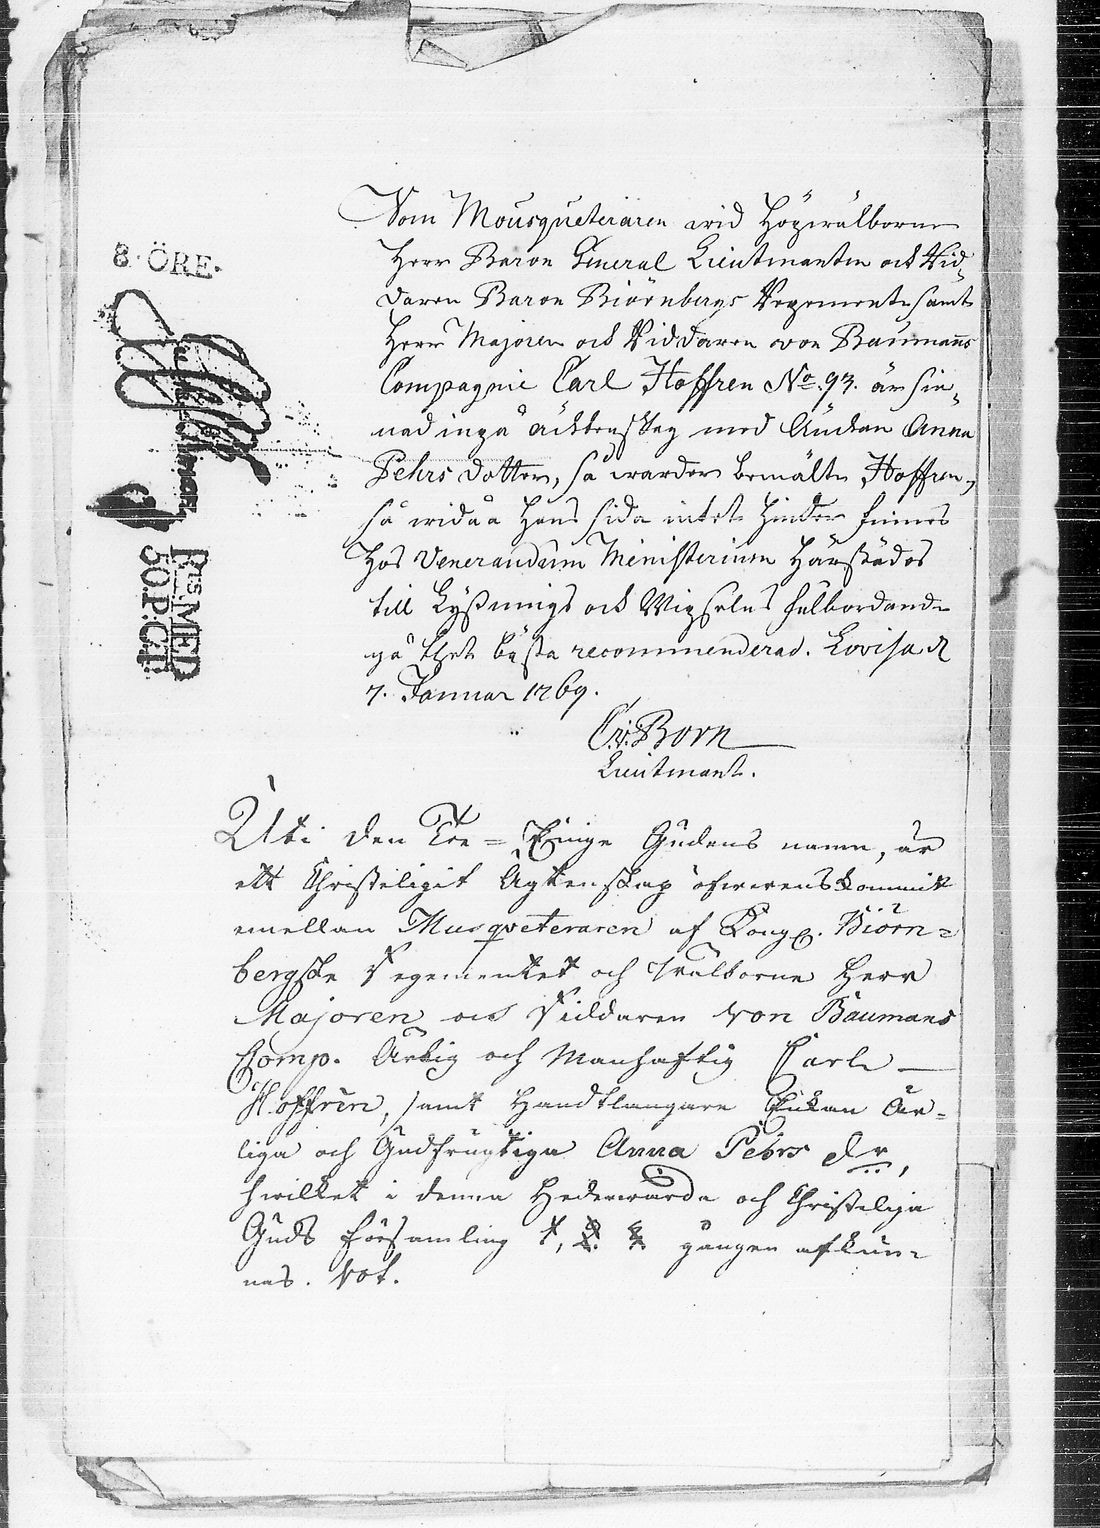 8 ÖRE.
Rts: MED
50.P:CT:
Som Mousqueteraren wid Högwälborne
Herr Baron General Lieutnanten och Rid-
daren Baron Biörnbergs Regemente samt
Herr Majoren och Riddaren von Baumanns
Compagnie Carl Hoffren No. 93. är sin-
nad ingå äcktenskap med Änckan Anna
Pehrs dotter, så warder bemälte Hoffren,
så wida å hans sida intet hinder finnes
hos Venerandum Ministerium härstädes
till Lysnings och Wigselns fulbordande
på thet bästa recommenderad. Lovisa d
7. Januar 1769.
C.v. Born
Lieutnant.
Uti den Tre-Eniga Gudens namn, är
ett Christeligit Ägtenskap öfwerenskommit
emellan Musqveteraren af Kongl. Biörn=
bergske Regementet och Wälborne Herr
Majoren och Riddaren von Baumans
Comp. Ärlig och Manhaftig Carl
Hoffrén, samt Handtlangare Enkan Är=
liga och Gudfrugtiga Anna Pehrs dr,
hwilket i denna Hederwärda och Christeliga
Guds Församling 1, 2. 3. gången afkun=
nas. Vot.